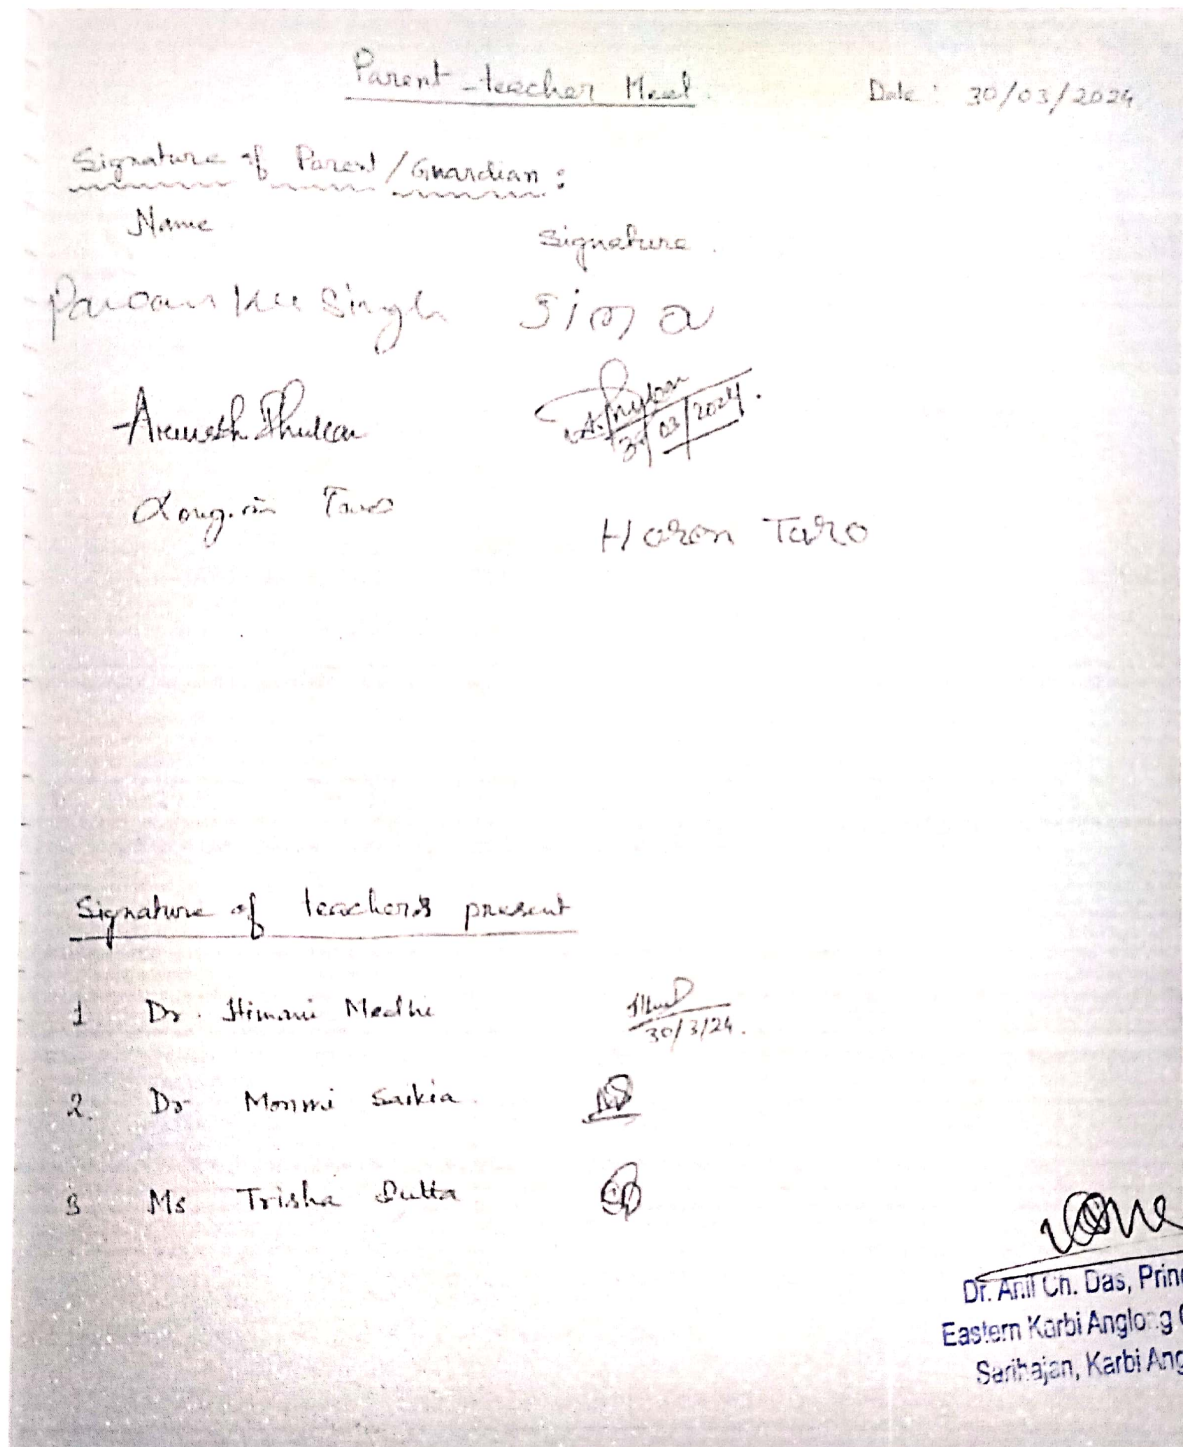 Parent-teacher Meet.
Date: 30/03/2024
Signature of Parent/Guardian:
Name
Signature.
Pawan Singh
Sima
Phukan
30/03/2024.
Taro
Horen Taro
Signature of teachers present
1 Dr. Himani Medhi
30/3/24.
2. Dr Monmi Saikia.
3 Ms Trisha Dutta
Dr. Anil Ch. Das, Prin
Eastern Karbi Anglong
Sarihajan, Karbi Ang